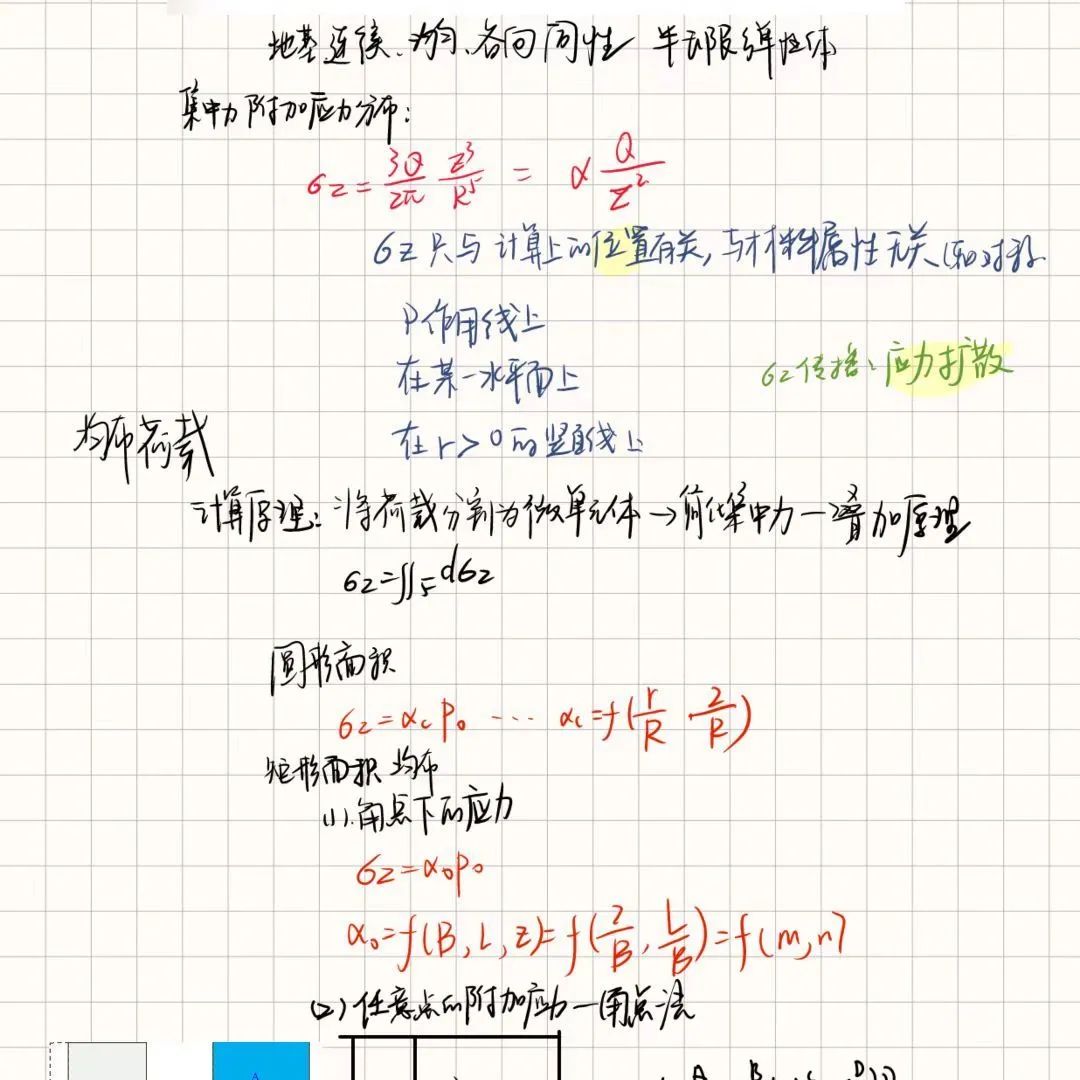 地基连续、均匀、各向同性 半无限弹性体
集中力附加应力分布：
σz = 3Q/2π z³/R⁵ = α Q/z²
σz只与计算点的位置有关，与材料属性无关（轴对称
P作用线上
在某一水平面上
σz传播：应力扩散
在r>0的竖直线上
均布荷载
计算原理：将荷载分割为微单元体→简化集中力—叠加原理
σz=∬F dσz
圆形面积
σz=αc p₀ ··· αc=f(r/R, z/R)
矩形面积 均布
(1).角点下的应力
σz=α₀p₀
α₀=f(B,L,z)=f(z/B, L/B)=f(m,n)
(2)任意点的附加应力—角点法
A